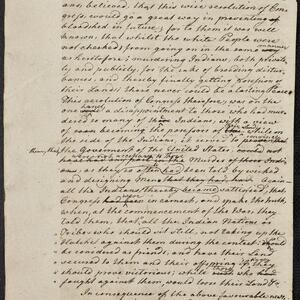 and believed, that this wise resolution of Con-
gress, would go a great way in preventing
bloodshed in future; for to them it was well
known, that whilst the white People were
not checked from going on in the same manner
as heretofore; murdering Indians, both private-
ly, and publickly, for the sake of breeding distur-
bances, and thereby finally getting Possession of
their Lands there never could be a lasting Peace.
This resolution of Congress therefore, was on the
one hand a disappointment to those who had mur-
dered so many of the Indians, with a view
of soon becoming the possessors of
the side of the Indians, it served to
them, that the Government of the United States, would not
the Murder of Indi-
ans; as they so often had been told they wished
and designing Men, that they had. Again
all the Indians thereby became satisfied, that
Congress in earnest, and spake the truth,
when, at the commencement of the War, they
told them, that, all the Indian Nations or
Tribes, who should sit still, not taking up the
Hatchet against them during the contest, should
be considered as friends, and have their Land
secured to them and their offspring if they
should prove victorious; while who had
fought against them, would loose their Land &c.
In consequence of the above favourable news,